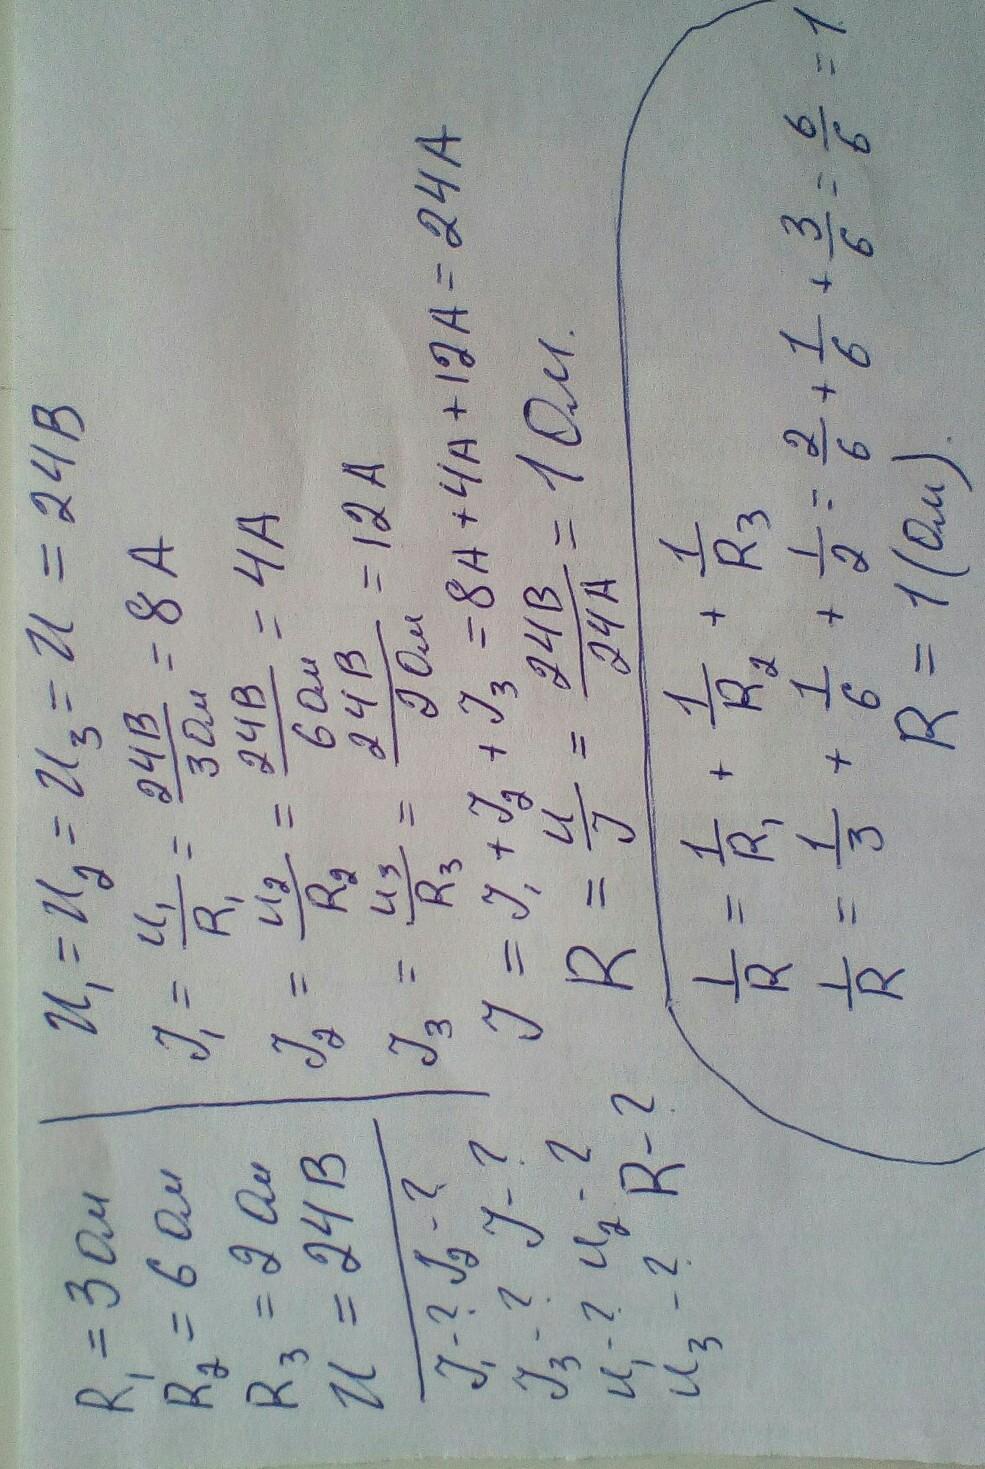 R₁ = 3 Ом
R₂ = 6 Ом
R₃ = 2 Ом
U = 24 В
J₁ - ? J₂ - ?
J₃ - ? J - ?
U₁ - ? U₂ - ?
U₃ - ? R - ?
U₁ = U₂ = U₃ = U = 24 В
J₁ = U₁/R₁ = 24В/3Ом = 8 А
J₂ = U₂/R₂ = 24В/6Ом = 4 А
J₃ = U₃/R₃ = 24В/2Ом = 12 А
J = J₁ + J₂ + J₃ = 8А + 4А + 12А = 24 А
R = U/J = 24В/24А = 1 Ом.
1/R = 1/R₁ + 1/R₂ + 1/R₃
1/R = 1/3 + 1/6 + 1/2 = 2/6 + 1/6 + 3/6 = 6/6 = 1
R = 1 (Ом).